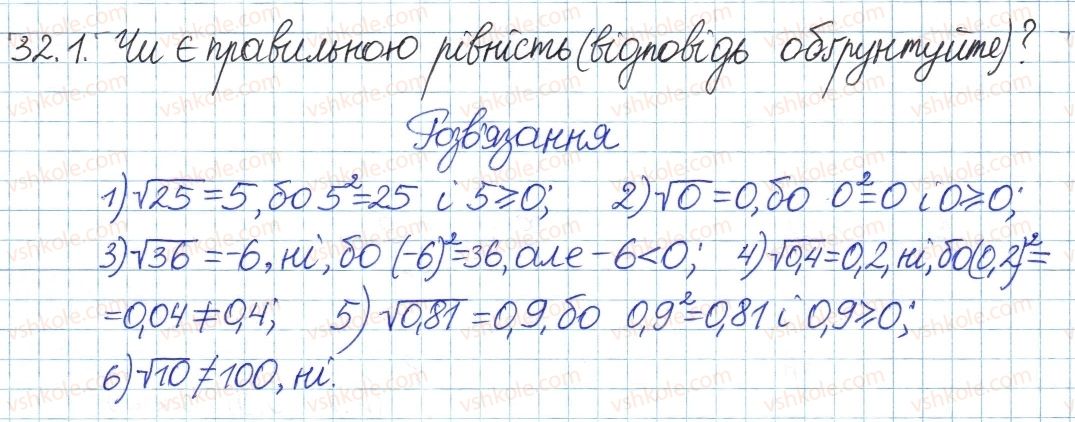 32.1. Чи є правильною рівність (відповідь обґрунтуйте)?
Розв'язання
1) √25 = 5, бо 5² = 25 і 5 ⩾ 0; 2) √0 = 0, бо 0² = 0 і 0 ⩾ 0;
3) √36 = -6, ні, бо (-6)² = 36, але -6 < 0; 4) √0,4 = 0,2, ні, бо (0,2)² =
= 0,04 ≠ 0,4; 5) √0,81 = 0,9, бо 0,9² = 0,81 і 0,9 ⩾ 0;
6) √10 ≠ 100, ні.